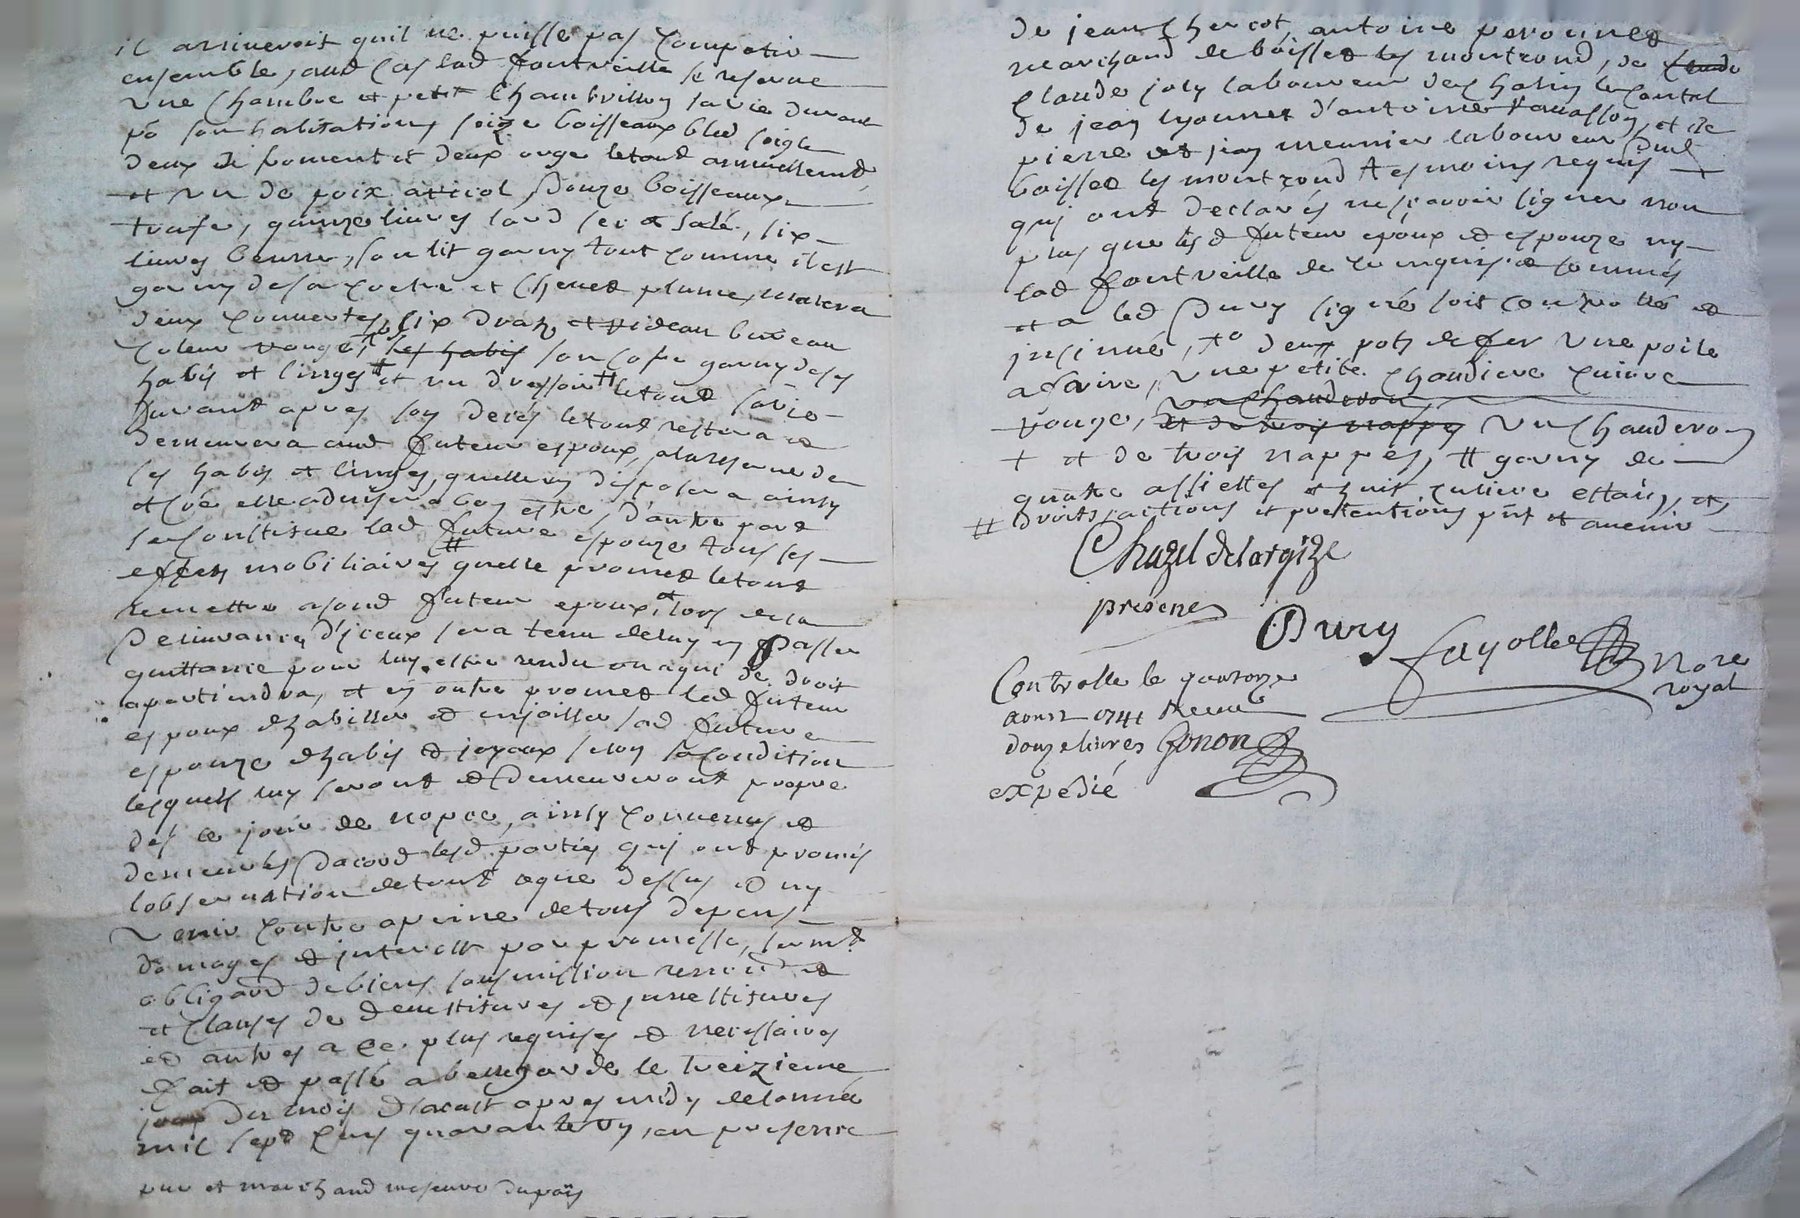 il arriveroit quil ne puisse pas compatir
ensemble, aud cas lad fontveille se reserve
une chambre et petit sa vie durant
po son habitation, seize boisseaux bled seigle
deux de froment et deux orge le tout annuellement,
et un de poix douze boisseaux
trufe, quinze livres lard sec et salé, six
livres beurre, son lit garny tout comme il est
garny de sa coetre et chevet plume, matera
deux couvertes, six draps, et rideau bureau
coleur rouge, ses habis son cofre garny de ses
habis et linges et un dressoir le tout sa vie
durant apres son deces le tout restera et
demeurera aud futeur espoux, à la reserve de
ses habis et linges, quelle en disposera ainsy
et coe elle advisera bon estre, d'autre part
se constitue lad future espouze tous ses
effets mobiliaires # quelle promet le tout
remettre a sond futeur epoux, et lors de la
delivrance d'iceux sera tenu de luy en passer
quittance pour luy estre rendu ou a qui de droit
apartiendra, et en outre promet led futeur
espoux dhabiller et enjoailler lad future
espouze dhabis et joyaux selon sa condition
lesquels luy seront et demeureront propre
des le jour de nopce, ainsy convenus et
demeurés dacord lesd parties qui ont promis
lobservation de tout ce que dessus et ny
venir contre a peine de tous depens
domages et interests par promesse, sermt
obligaon de biens sousmission renon et
et clauses de devestitures et investitures
et autres a ce plus requises et necessaires
fait et passé a bellegarde le treizieme
jour du mois d'aoust apres midy de lannée
mil sept cens quarante un, en presence
pur et marchand mesure du païs
de jean chercot, antoine peronnet
marchand de boisset les montrond, de
claude joly laboureur de
de jean lyonnet d'antoine et de
pierre et jean meunier laboureur dud
boisset les montrond tesmoins requis
qui ont declarés ne sçavoir signer non
plus que lesd futeur epoux et espouze ny
lad fontveille de ce enquis et sommés
et a led Dury signé soit controllé et
insinué, +o deux pots de fer une poile
a frire, une petite chaudiere cuivre
rouge, un chauderon et de trois nappes un chauderon
+ et de trois nappes, # garny de
quatre assiettes et huit culiere estain, et
# droits, actions et pretentions pnt et avenir
Chazel delargize
présent
Dury
fayolle Nore
royal
Controlle le quatorze
aoust 1741 Receu
douze livres Gonon
expédié